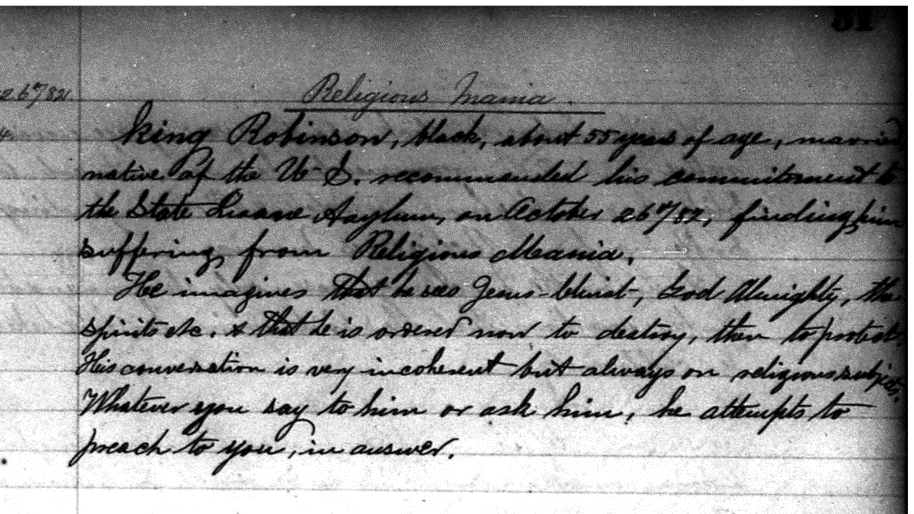 31
26th/82
Religious Mania.
King Robinson, black, about 55 years of age, married
native of the U.S. recommended his commitment to
the State Insane Asylum, on October 26th/82, finding him
suffering from Religious Mania.
He imagines that he sees Jesus-Christ, God Almighty, the
spirits etc. & that he is ordered now to destroy, then to protect.
His conversation is very incoherent but always on religious subjects.
Whatever you say to him or ask him, he attempts to
preach to you, in answer.